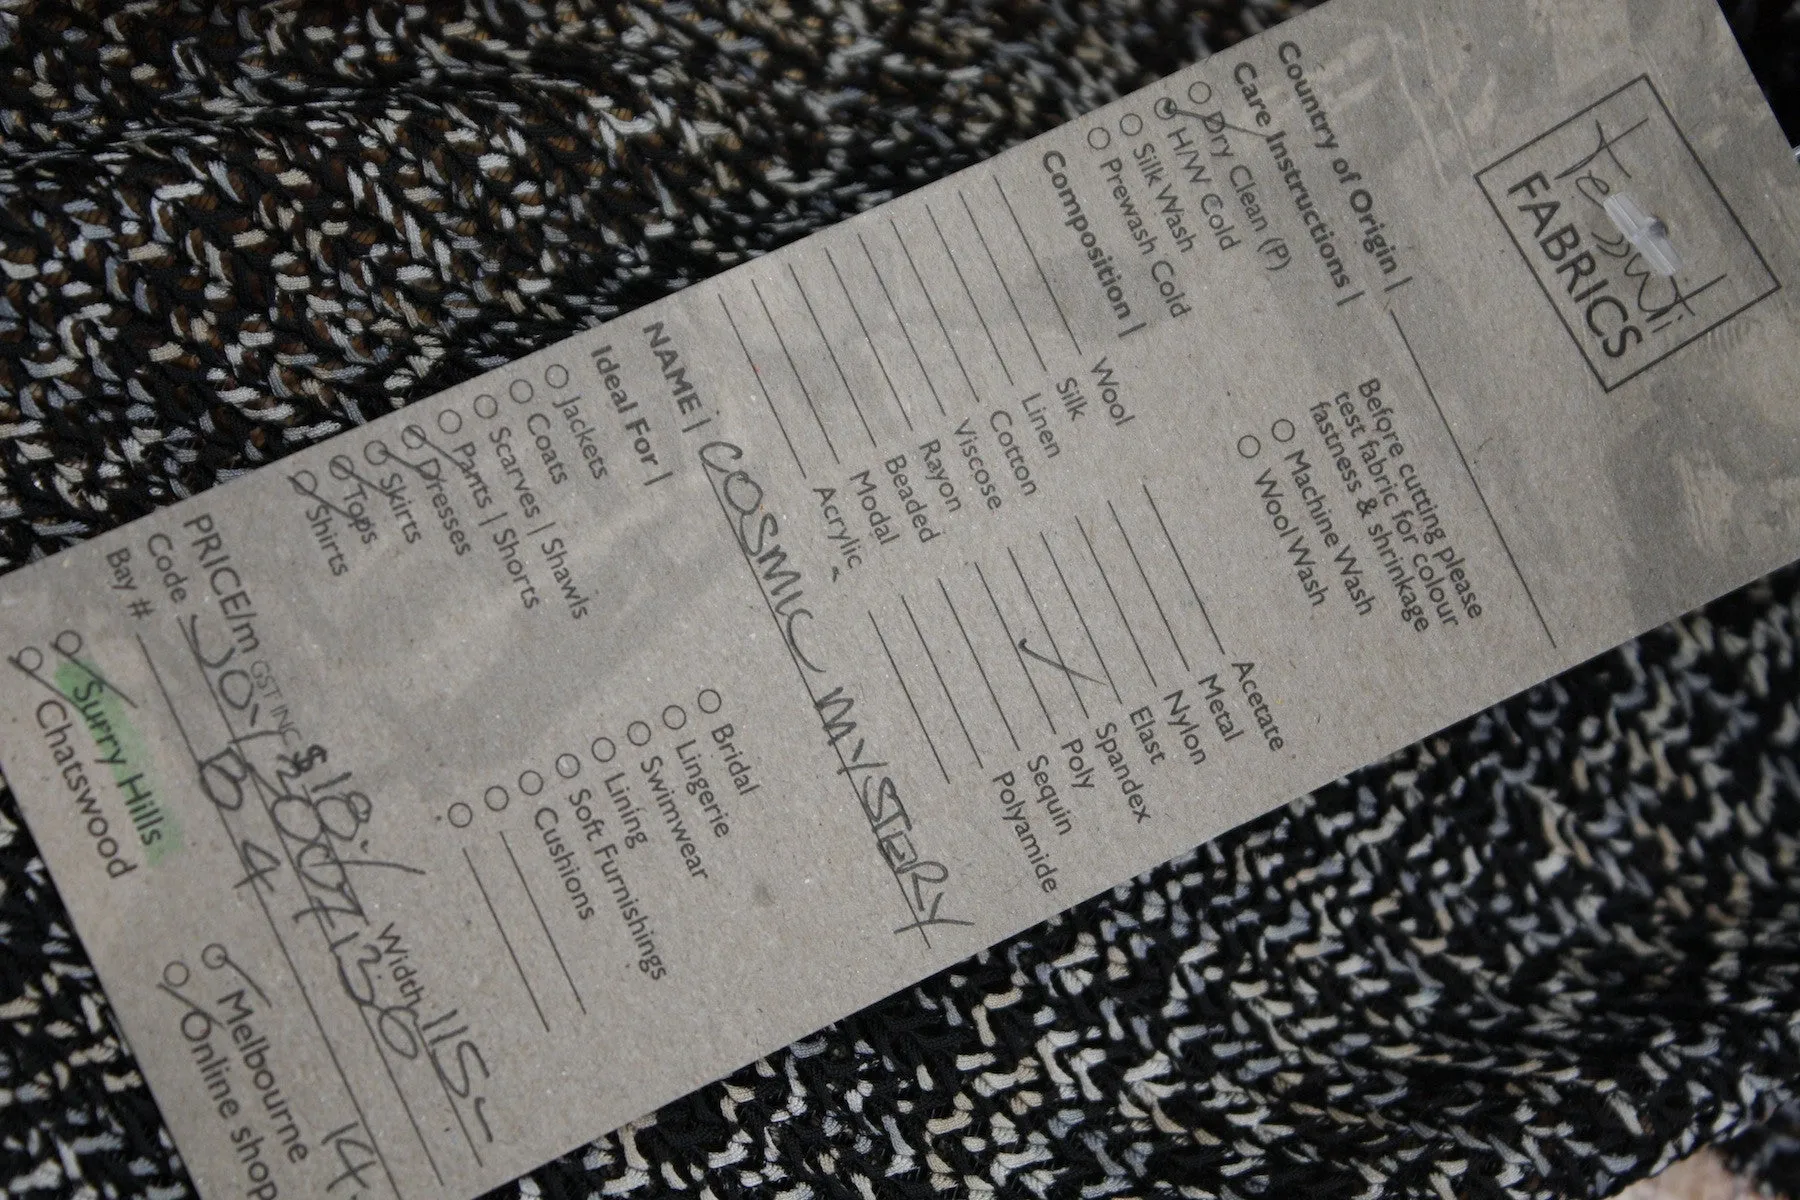 Tessuti
FABRICS
Country of Origin |
Care Instructions |
Dry Clean (P)
H/W Cold
Silk Wash
Prewash Cold
Before cutting please
test fabric for colour
fastness & shrinkage
Machine Wash
Wool Wash
Composition |
Wool
Silk
Linen
Cotton
Viscose
Rayon
Beaded
Modal
Acrylic
Acetate
Metal
Nylon
Elast
Spandex
Poly
Sequin
Polyamide
NAME | COSMIC MYSTERY
Ideal For |
Jackets
Coats
Scarves | Shawls
Pants | Shorts
Dresses
Skirts
Tops
Shirts
Bridal
Lingerie
Swimwear
Lining
Soft Furnishings
Cushions
PRICE/m GST INC $18.- Width 115-
Code
Bay # B4 14.
Surry Hills
Chatswood
Melbourne
Online shop